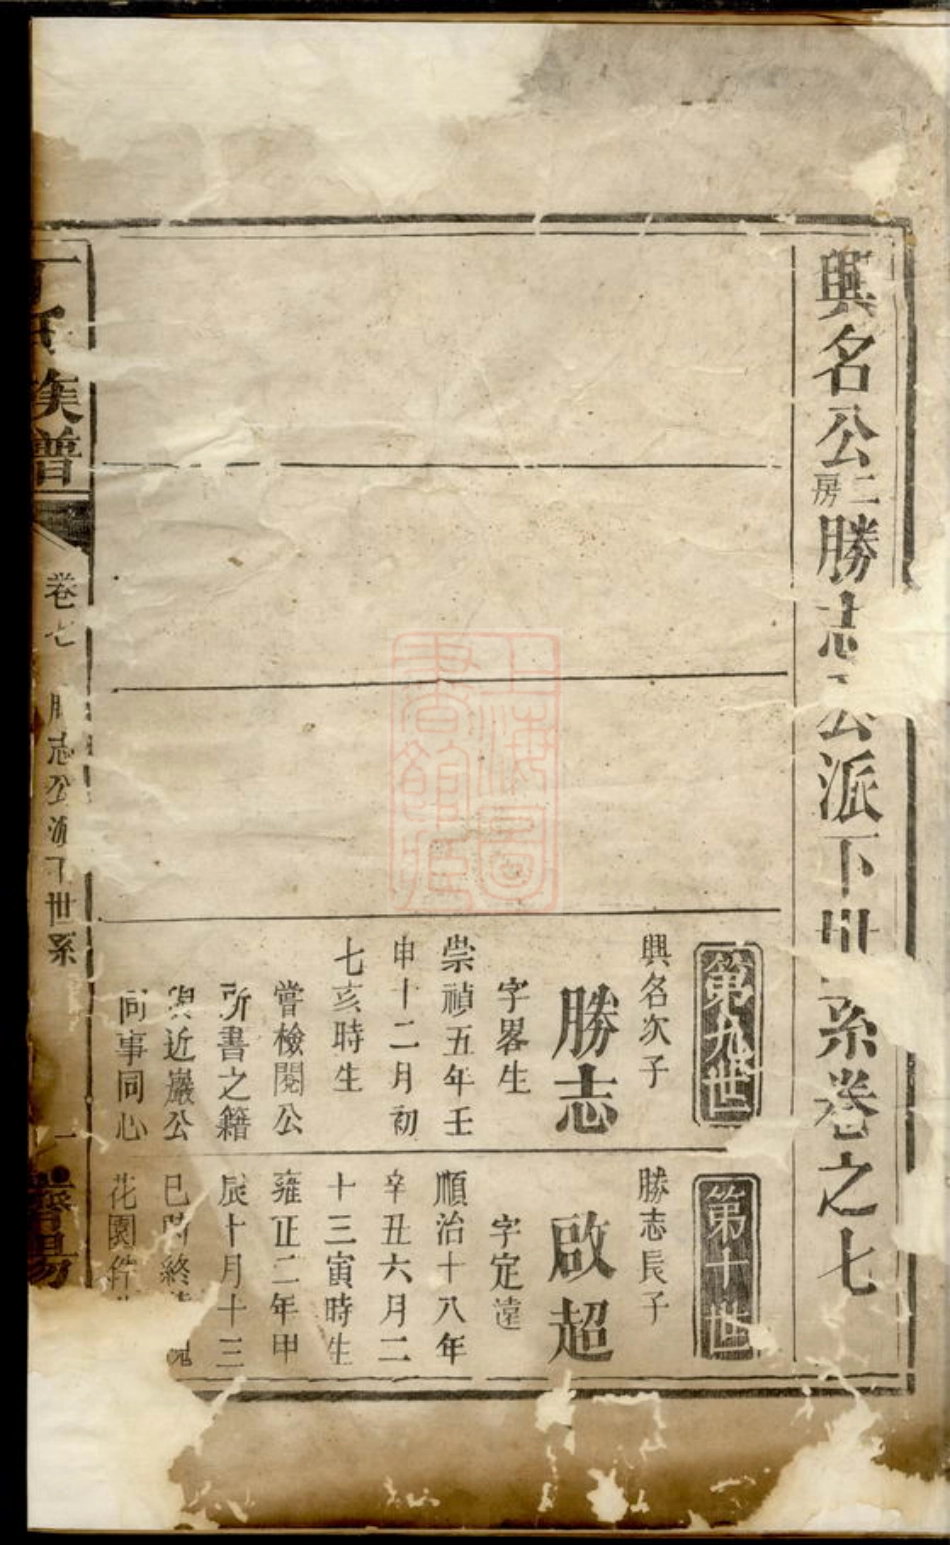 興名公二房勝志公派下世系卷之七
第九世
興名次子
勝志
字畧生
崇禎五年壬
申十二月初
七亥時生
嘗檢閱公
所書之籍
與近巖公
同事同心
第十世
勝志長子
啟超
字定遠
順治十八年
辛丑六月二
十三寅時生
雍正二年甲
辰十月十三
巳時終
花園
氏族譜
卷七
勝志公派下世系
一
上海圖書館藏